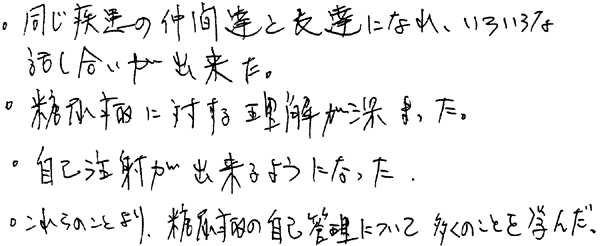 。同じ疾患の仲間達と友達になれ、いろいろな
話し合いが出来た。
。糖尿病に対する理解が深まった。
。自己注射が出来るようになった.
。これらのことより、糖尿病の自己管理について多くのことを学んだ。